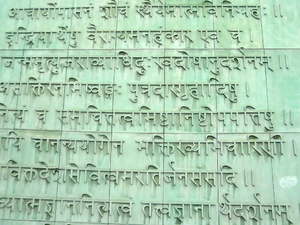 आचार्योपासनं शौचं स्थैर्यमात्मविनिग्रहः ।।
इन्द्रियार्थेषु वैराग्यमनहङ्कार एव च ।
जन्ममृत्युजराव्याधिदुःखदोषानुदर्शनम् ।।
असक्तिरनभिष्वङ्गः पुत्रदारगृहादिषु ।
त्यं च समचित्तत्वमिष्टानिष्टोपपत्तिषु ।।
यि चानन्ययोगेन भक्तिरव्यभिचारिणी
विक्तदेशसेवित्वमरतिर्जनसंसदि ।।
ध्यात्मज्ञाननित्यत्वं तत्त्वज्ञानार्थदर्शनम् ।